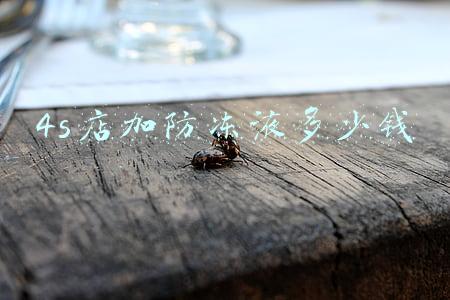 4s店加防冻液多少钱